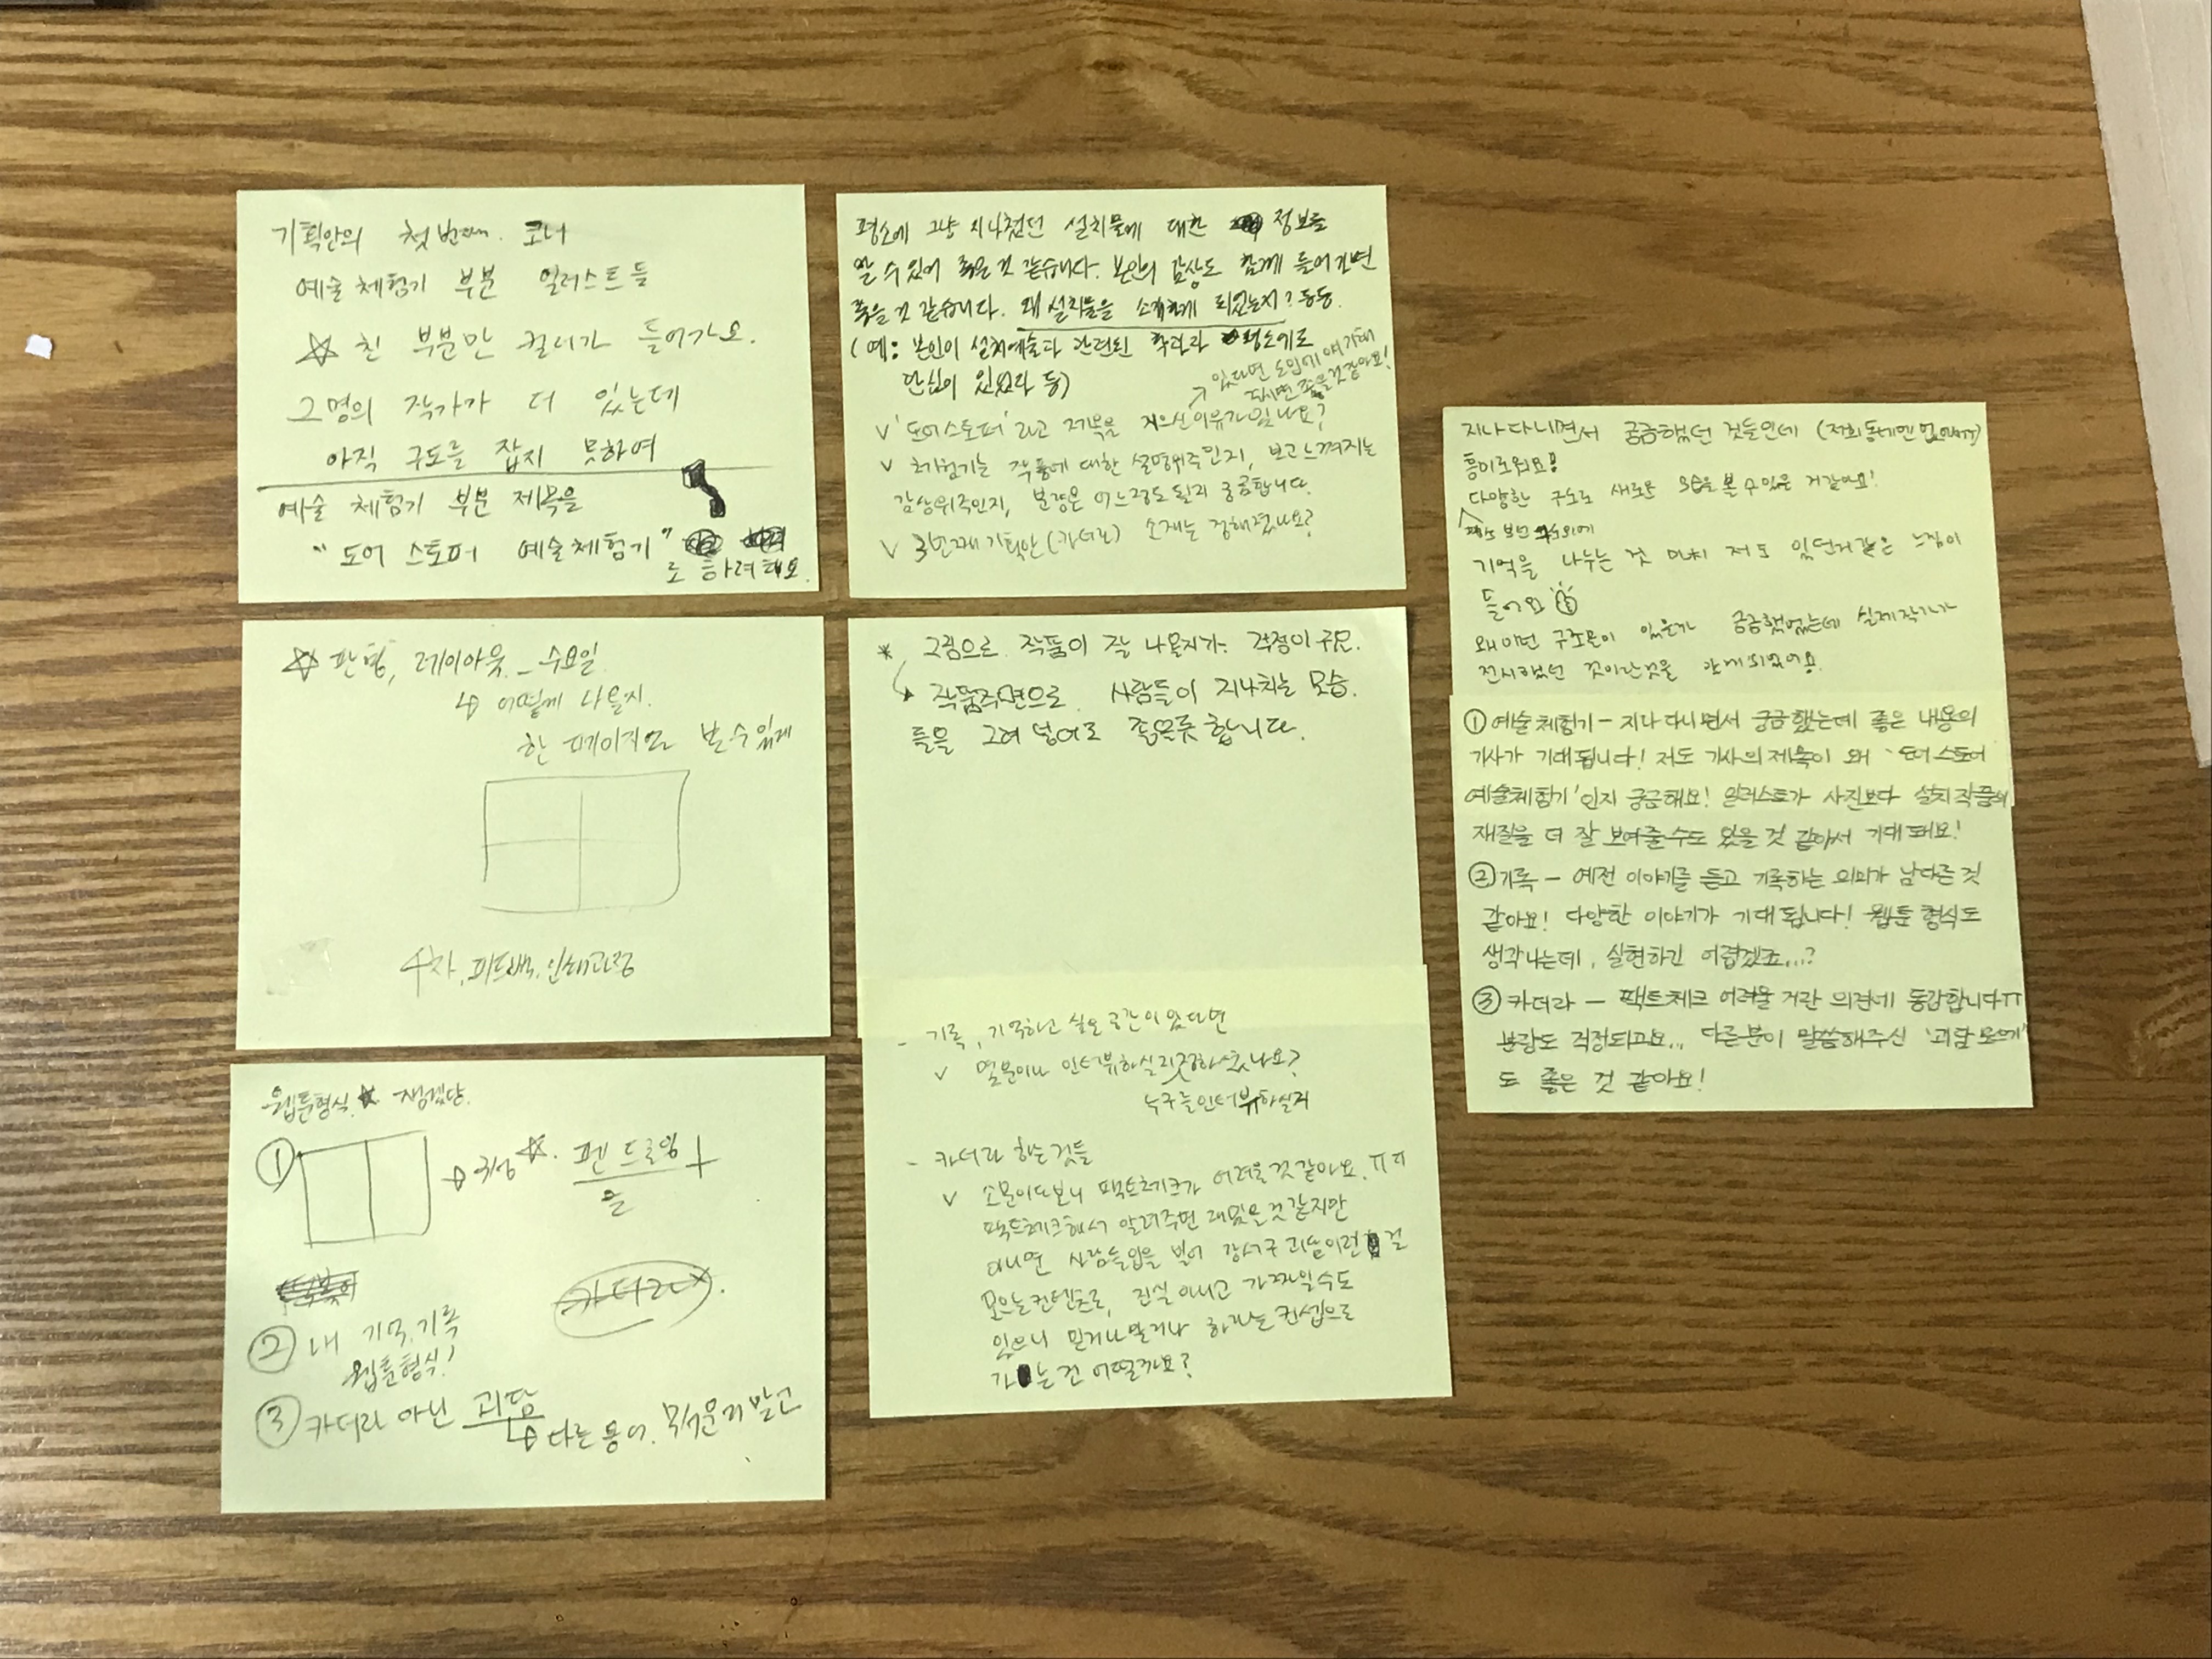 기획안의 첫번째. 코너
예술 체험기 부분 일러스트들
☆ 친 부분만 컬러가 들어가요.
2명의 작가가 더 있는데
아직 구도를 잡지 못하여
예술 체험기 부분 제목을
"도어 스토퍼 예술체험기"
로 하려해요.
☆ 판형, 레이아웃 _ 수요일
↳ 어떻게 나올지.
한 페이지로 볼 수 있게
4차, 피드백, 인쇄과정
웹툰형식 ★ 
① → ☆. 펜 드로잉
② 내 기억, 기록
웹툰형식!
카더라x.
③ 카더라 아닌 괴담
↳ 다른 용어. 무서운거 말고
평소에 그냥 지나쳤던 설치물에 대한 정보를
알 수 있어 좋을 것 같습니다. 본인의 감상도 함께 들어가면
좋을 것 같습니다. 왜 설치물을 소개하게 되었는지? 등등.
(예: 본인이 설치예술과 관련된 학과라 평소에도
관심이 있었다 등)
↗ 있다면 도입에 얘기해
주시면 좋을것같아요!
∨ '도어스토퍼'라고 제목을 지으신 이유가 있나요?
∨ 체험기는 작품에 대한 설명위주인지, 보고 느껴지는
감상위주인지, 분량은 어느정도 될지 궁금합니다.
∨ 3번째 기획안(카더라) 소재는 정해졌나요?
* 그림으로 작품이 잘 나올지가 걱정이구요.
↳ 작품주변으로 사람들이 지나치는 모습
들을 그려 넣어도 좋을듯 합니다.
- 기록, 기억하고 싶은 공간이 있다면
∨ 몇분이나 인터뷰하실지 정하셨나요?
누구를 인터뷰하실지
- 카더라 하는것들
∨ 소문이다보니 팩트체크가 어려울것 같아요.ㅠㅠ
팩트체크해서 알려주면 재밌을것 같지만
아니면 사람들입을 빌어 강서구 괴담이런 걸
모으는컨텐츠로, 진실 아니고 가짜일수도
있으니 믿거나말거나 하라는 컨셉으로
가는건 어떨까요?
지나다니면서 궁금했던 것들인데 (저희동네엔 없어서)
흥미로워요!
다양한 구도로 새로운 모습을 볼 수 있을 거같아요!
기억을 나누는 것 마치 저도 있던거같은 느낌이
들어요
왜 이런 구조물이 있는가 궁금했었는데 실제작가가
전시했던 것이란것을 알게되었어요.
① 예술체험기 - 지나다니면서 궁금했는데 좋은 내용의
기사가 기대됩니다! 저도 기사의 제목이 왜 '도어스토어
예술체험기'인지 궁금해요! 일러스트가 사진보다 설치작품의
재질을 더 잘 보여줄수도 있을 것 같아서 기대돼요!
② 기록 - 예전 이야기를 듣고 기록하는 의미가 남다른 것
같아요! 다양한 이야기가 기대됩니다! 웹툰 형식도
생각나는데, 실현하긴 어렵겠죠...?
③ 카더라 - 팩트체크 어려울 거란 의견에 동감합니다ㅠㅠ
분량도 걱정되고요... 다른분이 말씀해주신 '괴담 모으기'
도 좋은 것 같아요!